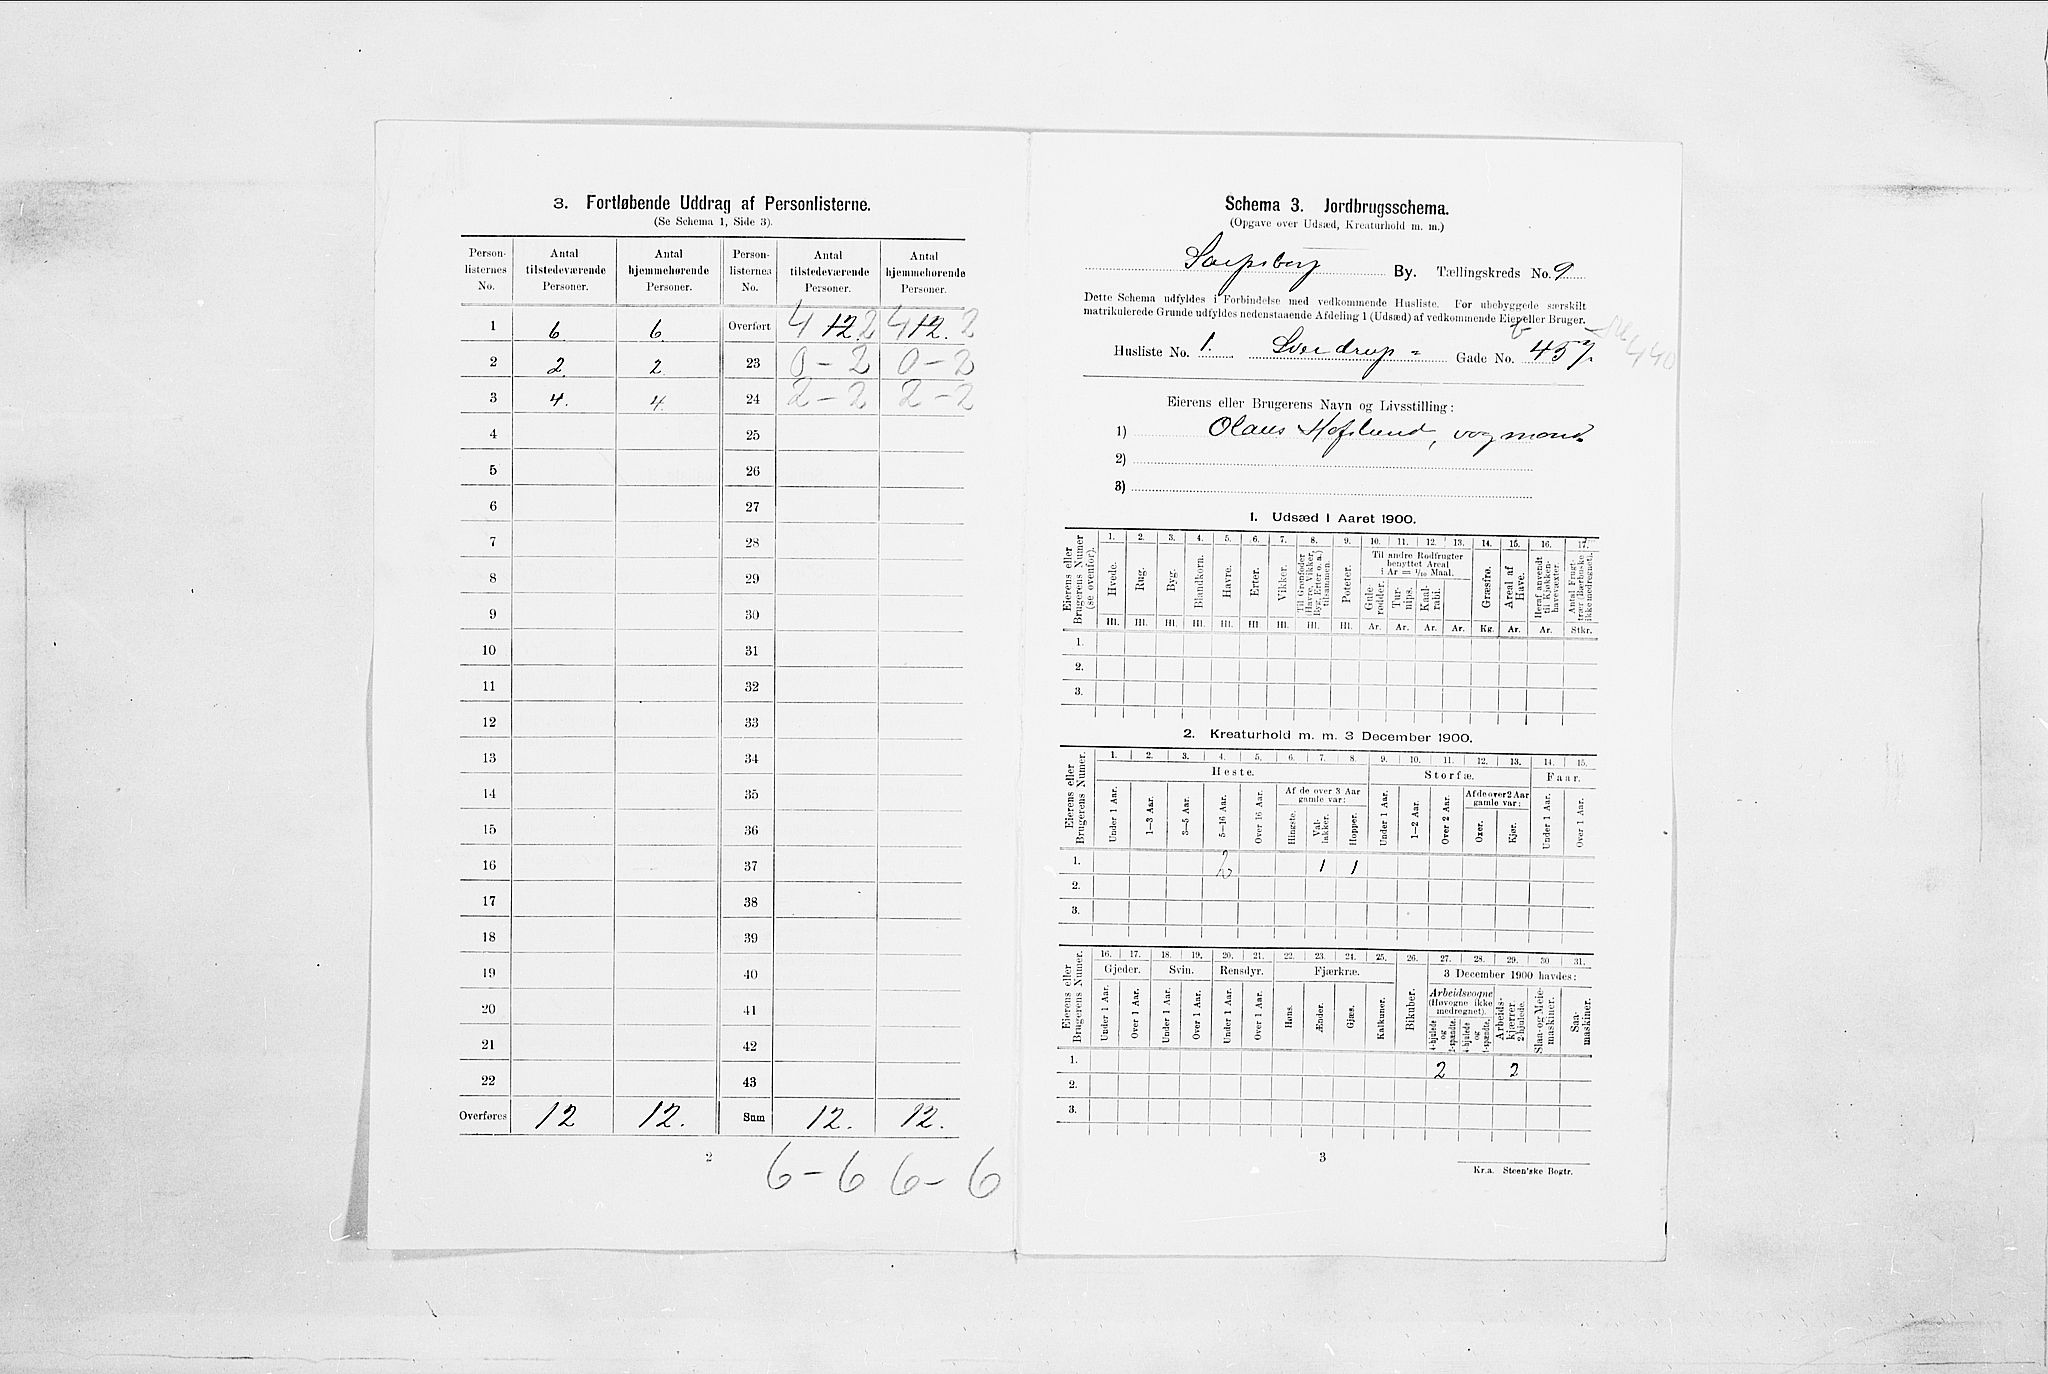 3. Fortløbende Uddrag af Personlisterne.
(Se Schema 1, Side 3).
Person-listernes No. | Antal tilstedeværende Personer. | Antal hjemmehørende Personer. | Person-listernes No. | Antal tilstedeværende Personer. | Antal hjemmehørende Personer.
1 | 6. | 6. | Overført | 4 12. 2 | 4 12. 2
2 | 2. | 2. | 23 | 0 – 2 | 0 – 2
3 | 4. | 4. | 24 | 2 – 2 | 2 – 2
4 | 25
5 | 26
6 | 27
7 | 28
8 | 29
9 | 30
10 | 31
11 | 32
12 | 33
13 | 34
14 | 35
15 | 36
16 | 37
17 | 38
18 | 39
19 | 40
20 | 41
21 | 42
22 | 43
Overføres | 12 | 12. | Sum | 12. | 12.
2
6 – 6 6 – 6
Schema 3. Jordbrugsschema.
(Opgave over Udsæd, Kreaturhold m. m.)
Sarpsborg By. Tællingskreds No. 9
Dette Schema udfyldes i Forbindelse med vedkommende Husliste. For ubebyggede særskilt
matrikulerede Grunde udfyldes nedenstaaende Afdeling 1 (Udsæd) af vedkommende Eier eller Bruger.
Husliste No. 1. Sverdrup - Gade No. 457. 440
Eierens eller Brugerens Navn og Livsstilling:
1) Olaus Hafslund, vognmand.
2)
3)
1. Udsæd i Aaret 1900.
Eierens eller Brugerens Numer (se ovenfor). | 1. | 2. | 3. | 4. | 5. | 6. | 7. | 8. | 9. | 10. | 11. | 12. | 13. | 14. | 15. | 16. | 17.
Til andre Rodfrugter benyttet Areal i Ar = 1/10 Maal.
Hvede. | Rug. | Byg. | Blandkorn. | Havre. | Erter. | Vikker. | Til Grønfoder (Havre, Vikker, Byg, Erter o. a.) tilsammen. | Poteter. | Gulerødder. | Turnips. | Kaalrabi. | Græsfrø. | Areal af Have. | Heraf anvendt til Kjøkkenhavevæxter. | Antal Frugttrær (Bærbuske ikke medregnet).
Hl. | Hl. | Hl. | Hl. | Hl. | Hl. | Hl. | Hl. | Hl. | Ar. | Ar. | Ar. | Ar. | Kg. | Ar. | Ar. | Stkr.
1.
2.
3.
2. Kreaturhold m. m. 3 December 1900.
Eierens eller Brugerens Numer. | 1. | 2. | 3. | 4. | 5. | 6. | 7. | 8. | 9. | 10. | 11. | 12. | 13. | 14. | 15.
Heste. | Storfæ. | Faar.
Af de over 3 Aar gamle var: | Af de over 2 Aar gamle var:
Under 1 Aar. | 1—3 Aar. | 3—5 Aar. | 5—16 Aar. | Over 16 Aar. | Hingste. | Vallakker. | Hopper. | Under 1 Aar. | 1—2 Aar. | Over 2 Aar. | Oxer. | Kjør. | Under 1 Aar. | Over 1 Aar.
1. | 2 | 1 | 1
2.
3.
Eierens eller Brugerens Numer. | 16. | 17. | 18. | 19. | 20. | 21. | 22. | 23. | 24. | 25. | 26. | 27. | 28. | 29. | 30 | 31.
Gjeder. | Svin. | Rensdyr. | Fjærkræ. | 3 December 1900 havdes:
Arbeidsvogne (Høvogne ikke medregnet).
Under 1 Aar. | Over 1 Aar. | Under 1 Aar. | Over 1 Aar. | Under 1 Aar. | Over 1 Aar. | Høns. | Ænder. | Gjæs. | Kalkuner. | Bikuber. | 4-hjulede og 2-spændte. | 4-hjulede og 1-spændte. | Arbeidskjærrer, 2-hjulede. | Slaa- og Meiemaskiner. | Saamaskiner.
1. | 2 | 2
2.
3.
3
Kr.a. Steen'ske Bogtr.